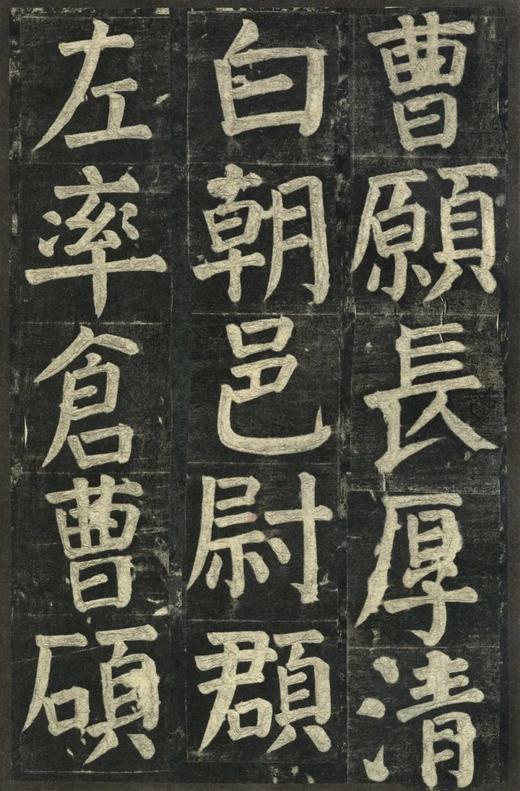 曹願長厚清
白朝邑尉頵
左率倉曹碩